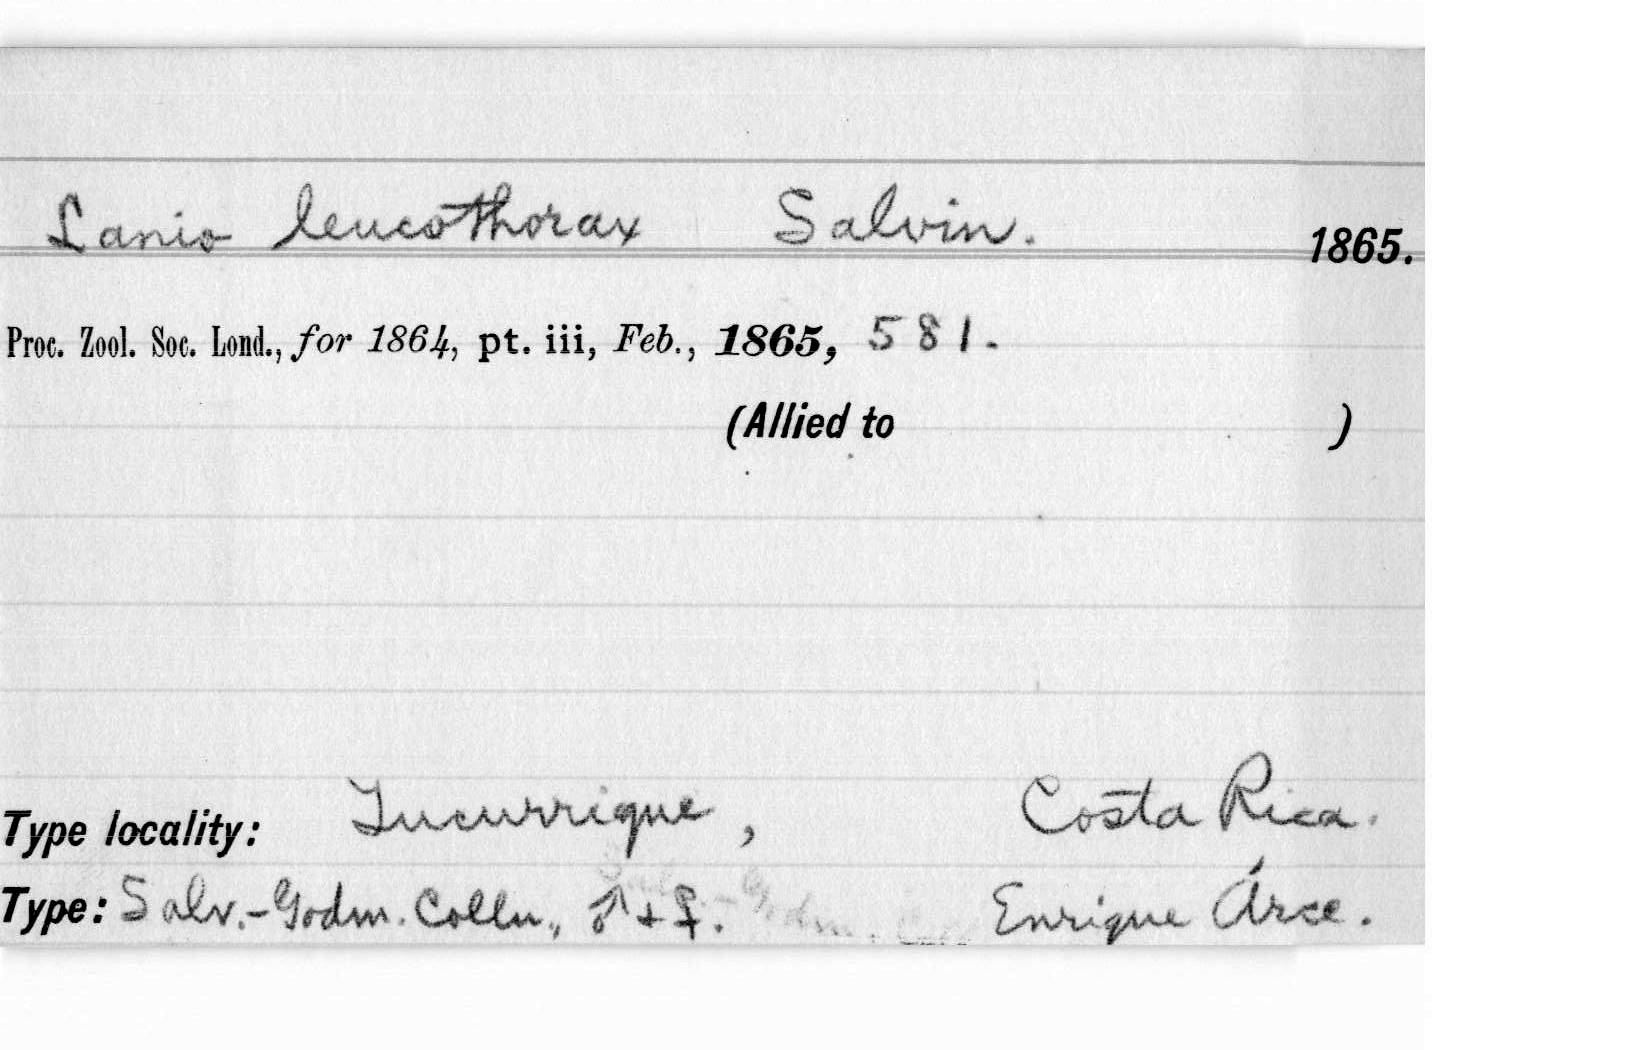 Lanio leucothorax Salvin. 1865.
Proc. Zool. Soc. Lond., for 1864, pt. iii, Feb., 1865, 581.
(Allied to )
Type locality: Tucurrique, Costa Rica.
Type: Salv.-Godm. Colln., ♂ + ♀. Enrique Árce.